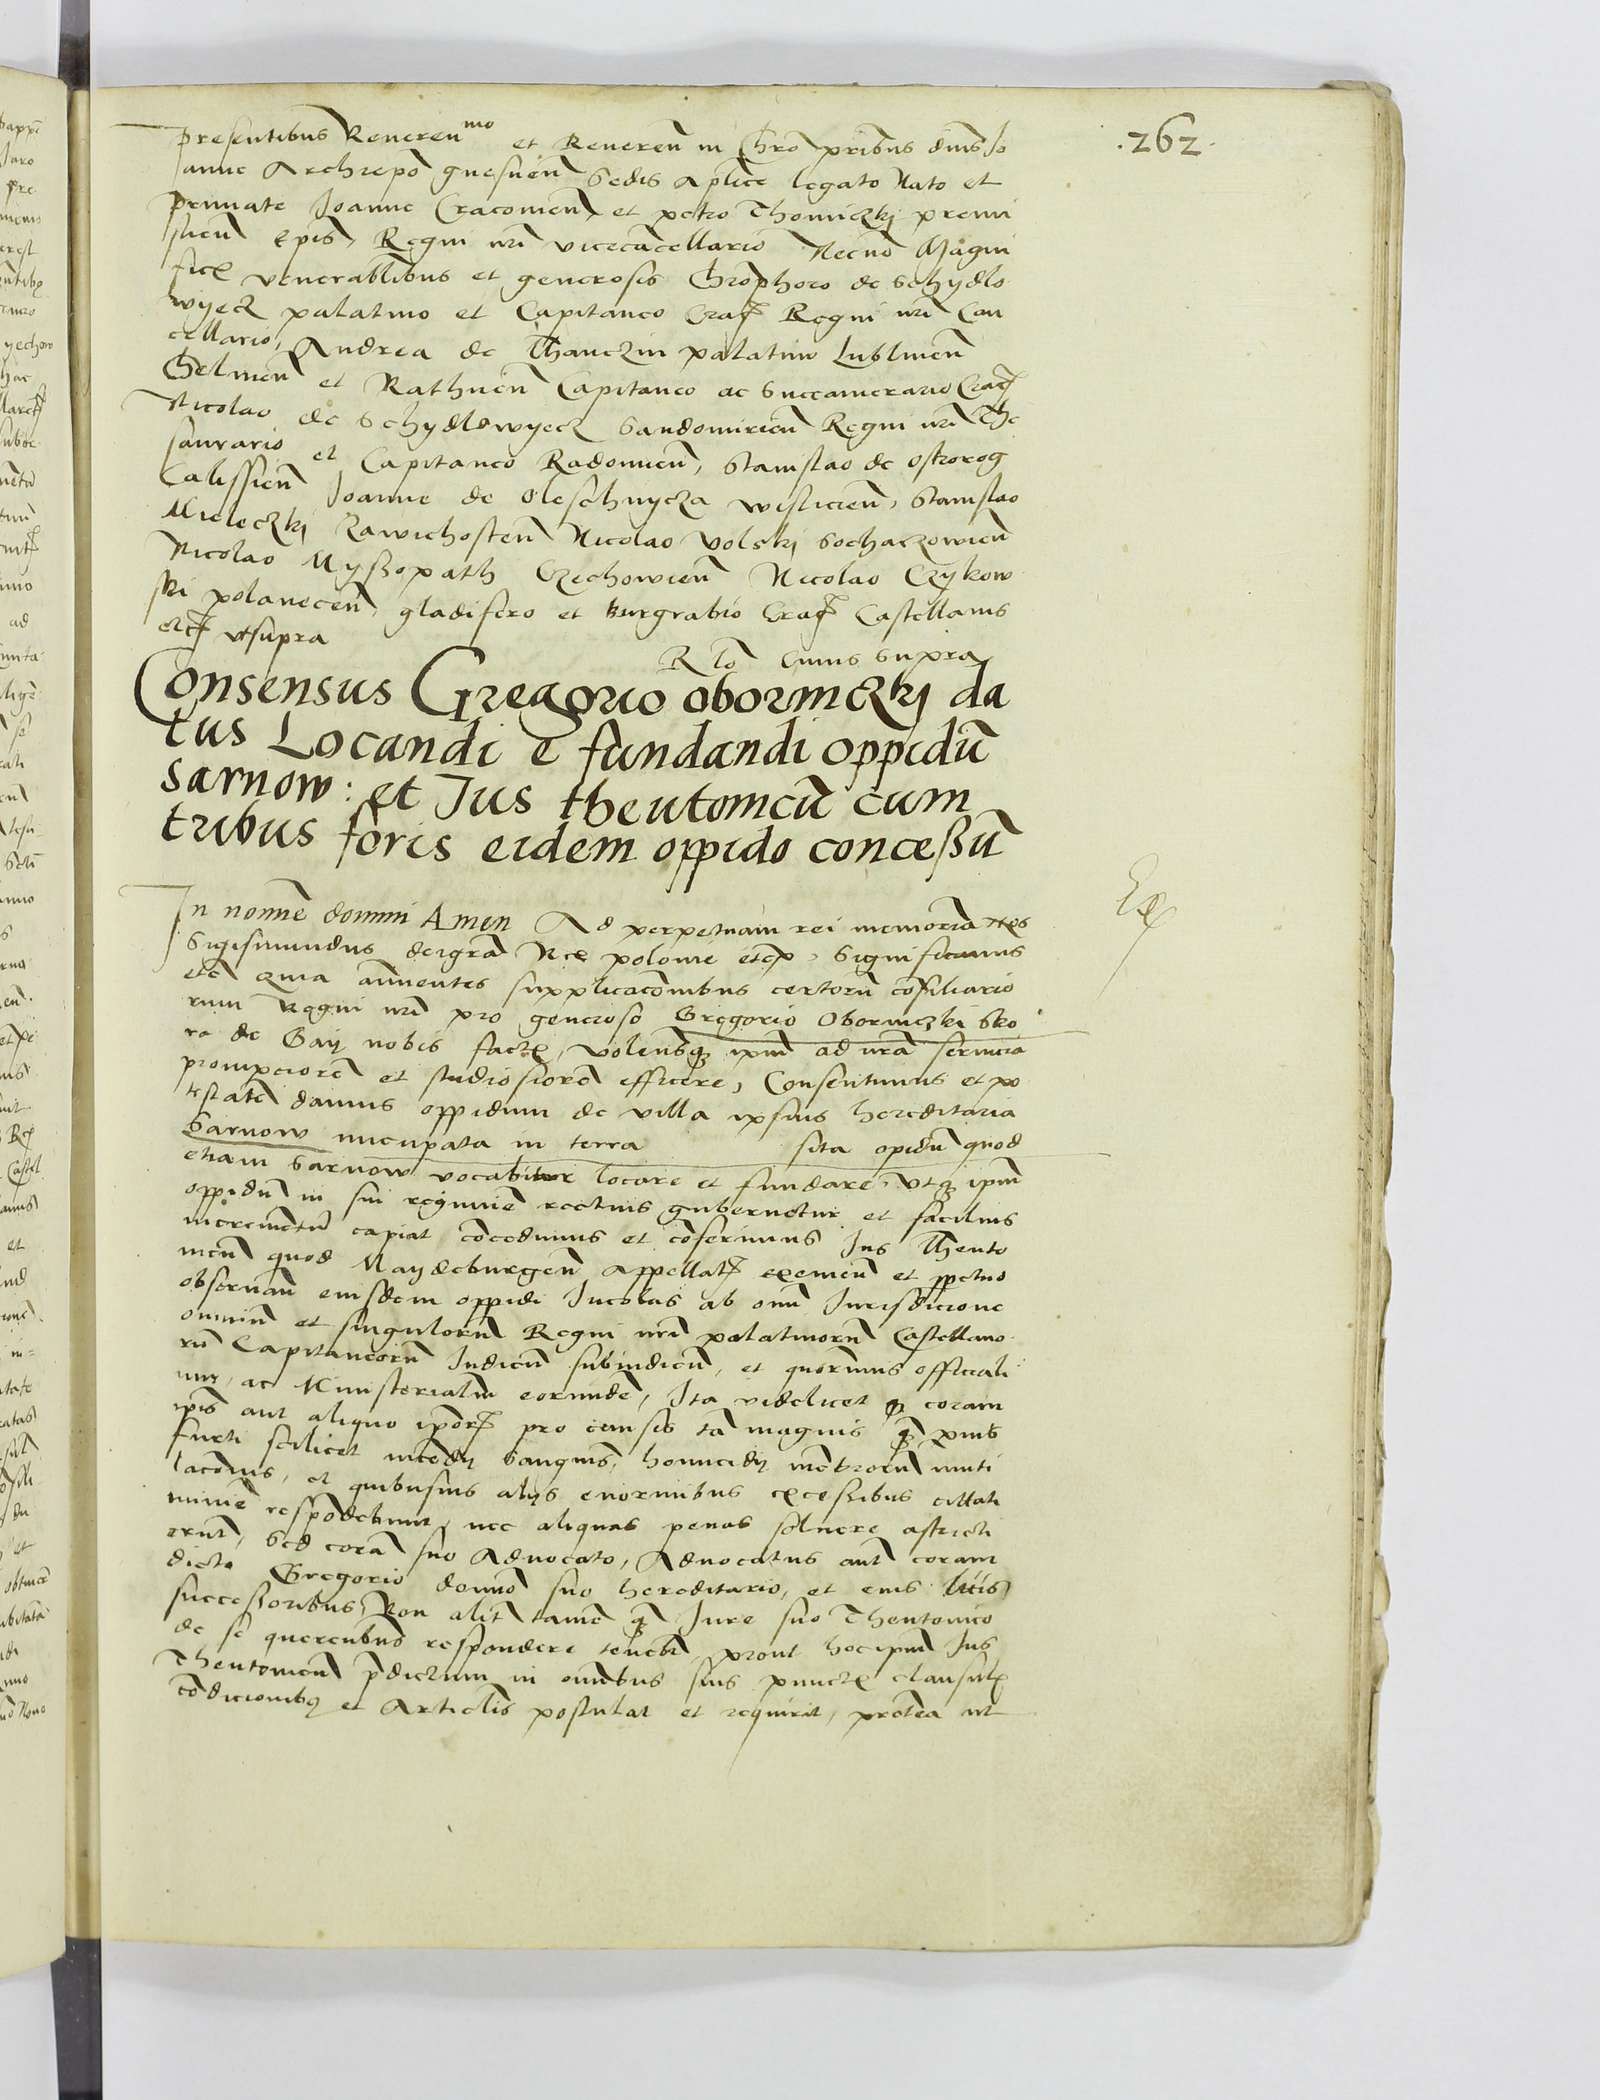 .262.
presentibus Reveren mo et Reveren in Chro pribus dnis Jo
anne Archiepo gnesnen Sedis aplice legato Nato et
primate Joanne Cracovien et petro Thomiczkj premi
slien Epis, Regni nri vicecancellario Necno Magni
ficis venerabilibus et generosis Chrophoro de Schydlo
wyecz palatino et Capitaneo Crac Regni nri Can
cellario, Andrea de Thanczin palatino Lublinen
Chelmen et Rathnen Capitaneo ac Succamerario Crac
Nicolao de Schydlowyecz Sandomirien Regni nri The
saurario et Capitaneo Radomien, Stanislao de ostrorog
Calissien Joanne de Oleschnycza wislicien, Stanislao
Mieleczkj Zawichosten Nicolao Volskj Sochaczowien
Nicolao Myßopath Czechowien Nicolao Czykow
ski polanecen, gladifero et Burgrabio Crac Castellanis
etc vtsupra
Rlo Cuius Supra
Consensus Gregorio oborniczkj da
tus Locandi e fundandi oppidu
sarnow: et Jus theutonicu cum
tribus foris eidem oppido conceßu
In nomine domini Amen Ad perpetuam rei memoria Nos
Sigismundus dei gra Rex polonie etc, Significamus
etc quia annuentes supplicacionibus certoru consiliario
rum Regni nri pro generoso Gregorio Oborniczki Sko
ra de Gaij nobis factis, volentesq ipm ad nra servicia
prompciore et studiosiore efficere, Consentimus et po
testate damus oppidum de villa ipsius hereditaria
Sarnow nucupata in terra sita opidu quod
etiam Sarnow vocabitur locare et fundare, vtq ipm
oppidu in sui regimine rectius gubernetur et facilius
incrementu capiat concedimus et conferimus Jus Theuto
nicu quod Maydeburgen appellat eximen et ppetuo
observan eiusdem oppidi Incolas ab omi Jurisdicione
omniu et singuloru Regni nri palatinoru Castellano
ru Capitaneoru Judicu subiudicu, et quorumvis official
ium, ac Ministerialiu eorunde, Ita videlicet q coram
ipis aut aliquo ipor pro causis ta magnis q pvis
furti scilicet incedij Sanguis, homicidij mebroru muti
lacionis, et quibusvis alijs enormibus excessibus citati
minime respodebunt, nec aliquas penas solvere astricti
erut, Sed cora suo Advocato, Advocatus aut coram
dicto Gregorio domino suo hereditario, et eius ltiis
successoribus, Non alit tame q Jure suo Theutonico
de se querentibus respondere tenebit, prout hoc ipm Jus
Theutonicu pdictum in omibus suis punctis clausulis
condicionibus et Articlis postulat et requirit, preterea ut